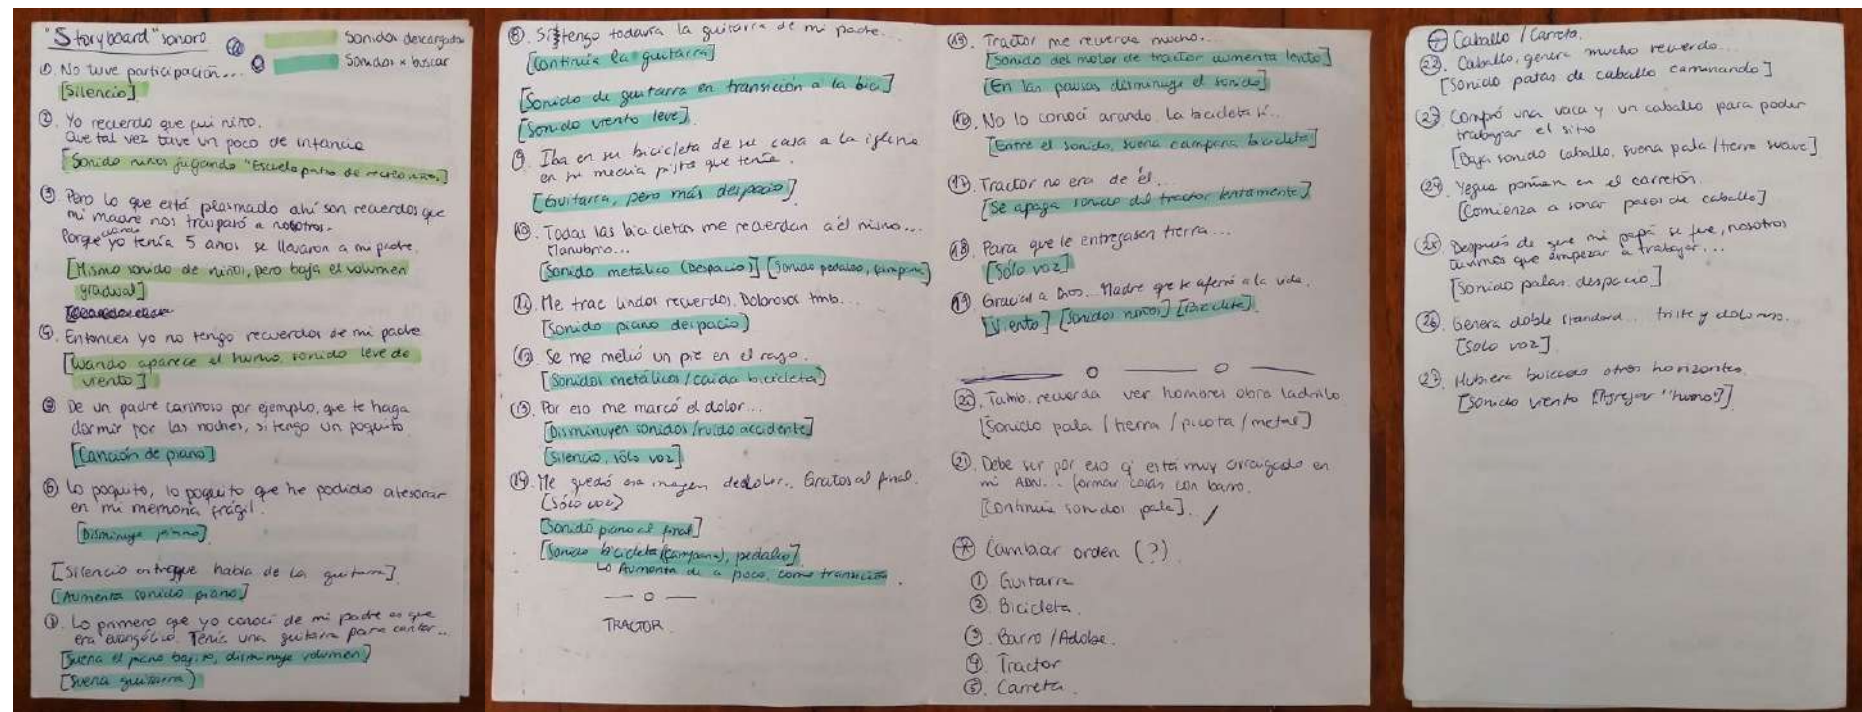 "Storyboard" sonoro
Sonidos descargados
Sonidos x buscar
① No tuve participación...
[Silencio]
② Yo recuerdo que fui niño.
Que tal vez tuve un poco de infancia
[Sonido niños jugando "Escuela patio de recreo niños]
③ Pero lo que está plasmado ahí son recuerdos que
mi madre nos traspasó a nosotros.
Porque cuando yo tenía 5 años se llevaron a mi padre.
[Mismo sonido de niños, pero baja el volumen
gradual]
④. Entonces yo no tengo recuerdos de mi padre
[Cuando aparece el humo, sonido leve de
viento]
⑤ De un padre cariñoso por ejemplo, que te haga
dormir por las noches, si tengo un poquito
[Canción de piano]
⑥ Lo poquito, lo poquito que he podido atesorar
en mi memoria frágil.
[Disminuye piano]
[Silencio habla de la guitarra]
[Aumenta sonido piano]
⑦. Lo primero que yo conocí de mi padre es que
era evangélico. Tenía una guitarra para cantar...
[Suena el piano bajito, disminuye volumen]
[Suena guitarra]
⑧. Si tengo todavía la guitarra de mi padre...
[Continúa la guitarra]
[Sonido de guitarra en transición a la bici]
[Sonido viento leve]
9. Iba en su bicicleta de su casa a la iglesia
en su media pista que tenía.
[Guitarra, pero más despacio]
⑩. Todas las bicicletas me recuerdan a él mismo...
Manubrio...
[Sonido metálico (Despacio)] [Sonido pedaleo, campana]
⑪ Me trae lindos recuerdos. Dolorosos tmb...
[Sonido piano despacio]
⑫ Se me metió un pie en el rayo.
[Sonidos metálicos/caída bicicleta]
⑬. Por eso me marcó el dolor...
[Disminuyen sonidos/ruido accidente]
[Silencio, sólo voz]
⑭. Me quedó esa imagen de dolor.. Gratos al final.
[Sólo voz]
[Sonido piano al final]
[Sonido bicicleta (campana), pedaleo]
↳ Aumenta de a poco, como transición.
— o —
TRACTOR.
⑮. Tractor me recuerda mucho...
[Sonido del motor de tractor aumenta lento]
[En las pausas disminuye el sonido]
⑯. No lo conocí arando. La bicicleta sí...
[Entre el sonido, suena campana bicicleta]
⑰. Tractor no era de él...
[Se apaga sonido del tractor lentamente]
⑱. Para que le entregasen tierra...
[Sólo voz]
⑲. Gracias a Dios... Madre que se aferró a la vida.
[Viento] [Sonidos niños] [Bicicleta]
— o — o —
⑳. recuerda ver hombres obra ladrillo.
[Sonido pala / tierra / picota / metal]
㉑. Debe ser por eso q' está muy arraigado en
mi ADN... formar casas con barro.
[Continúa sonidos pala].
* Cambiar orden (?)
① Guitarra
②. Bicicleta.
③. Barro / Adobe.
④. Tractor
⑤. Carreta.
Caballo / Carreta.
㉒. Caballo, genera mucho recuerdo...
[Sonido patas de caballo caminando]
㉓ Compró una vaca y un caballo para poder
trabajar el sitio
[Baja sonido caballo, suena pala/tierra suave]
㉔. Yegua ponían en el carretón.
[Comienza a sonar pasos de caballo]
㉕. Después de que mi papá se fue, nosotros
tuvimos que empezar a trabajar...
[Sonido palas despacio]
㉖. Genera doble standard... triste y doloroso.
[Solo voz].
㉗. Hubiera buscado otros horizontes.
[Sonido viento [Agregar "humo"?]]